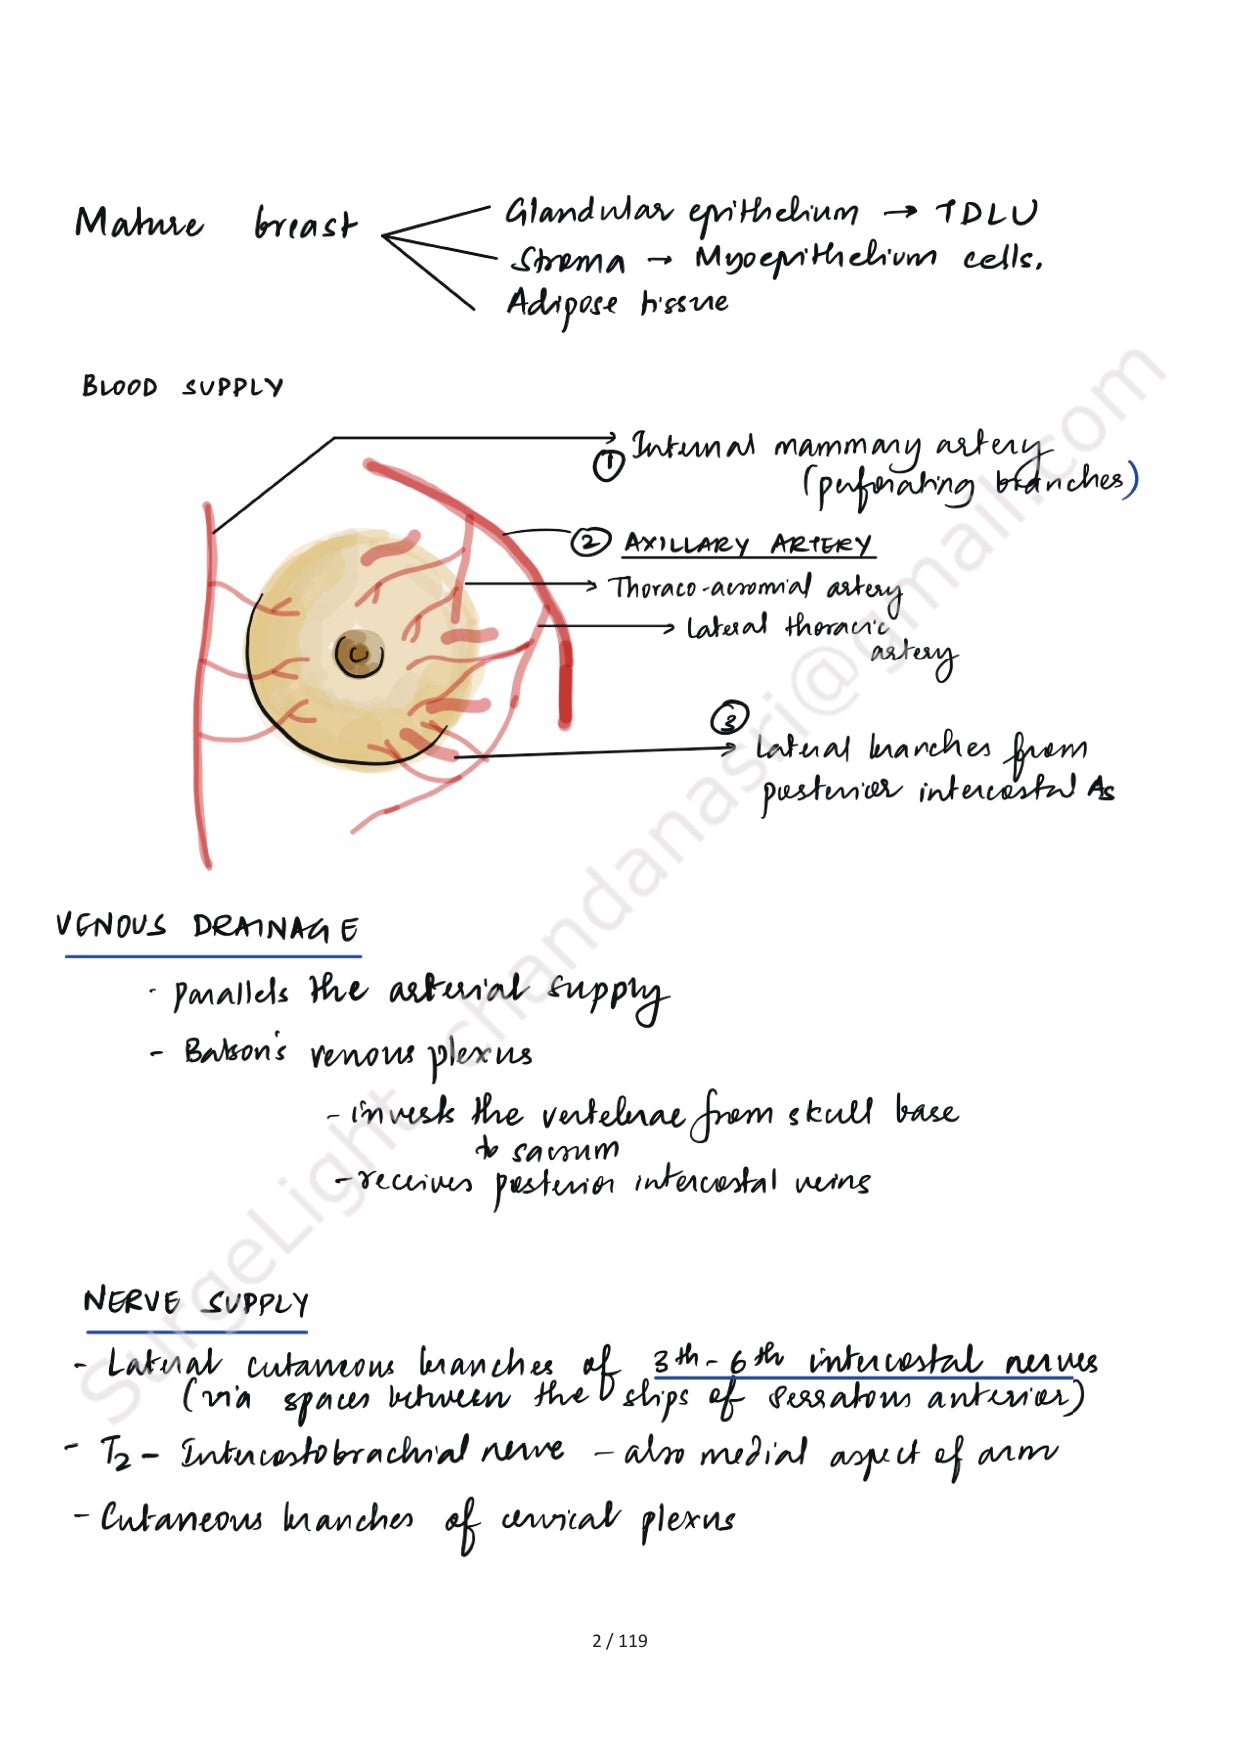 Mature breast
Glandular epithelium → TDLU
Stroma → Myoepithelium cells.
Adipose tissue
BLOOD SUPPLY
① Internal mammary artery
(perforating branches)
② AXILLARY ARTERY
Thoraco-acromial artery
Lateral thoracic
artery
③
Lateral branches from
posterior intercostal As
VENOUS DRAINAGE
- Parallels the arterial supply
- Batson's venous plexus
- invests the vertebrae from skull base
to sacrum
- receives posterior intercostal veins
NERVE SUPPLY
- Lateral cutaneous branches of 3th - 6th intercostal nerves
(via spaces between the slips of serratous anterior)
- T2 - Intercostobrachial nerve - also medial aspect of arm
- Cutaneous branches of cervical plexus
SurgeLight chandanasri@gmail.com
2 / 119